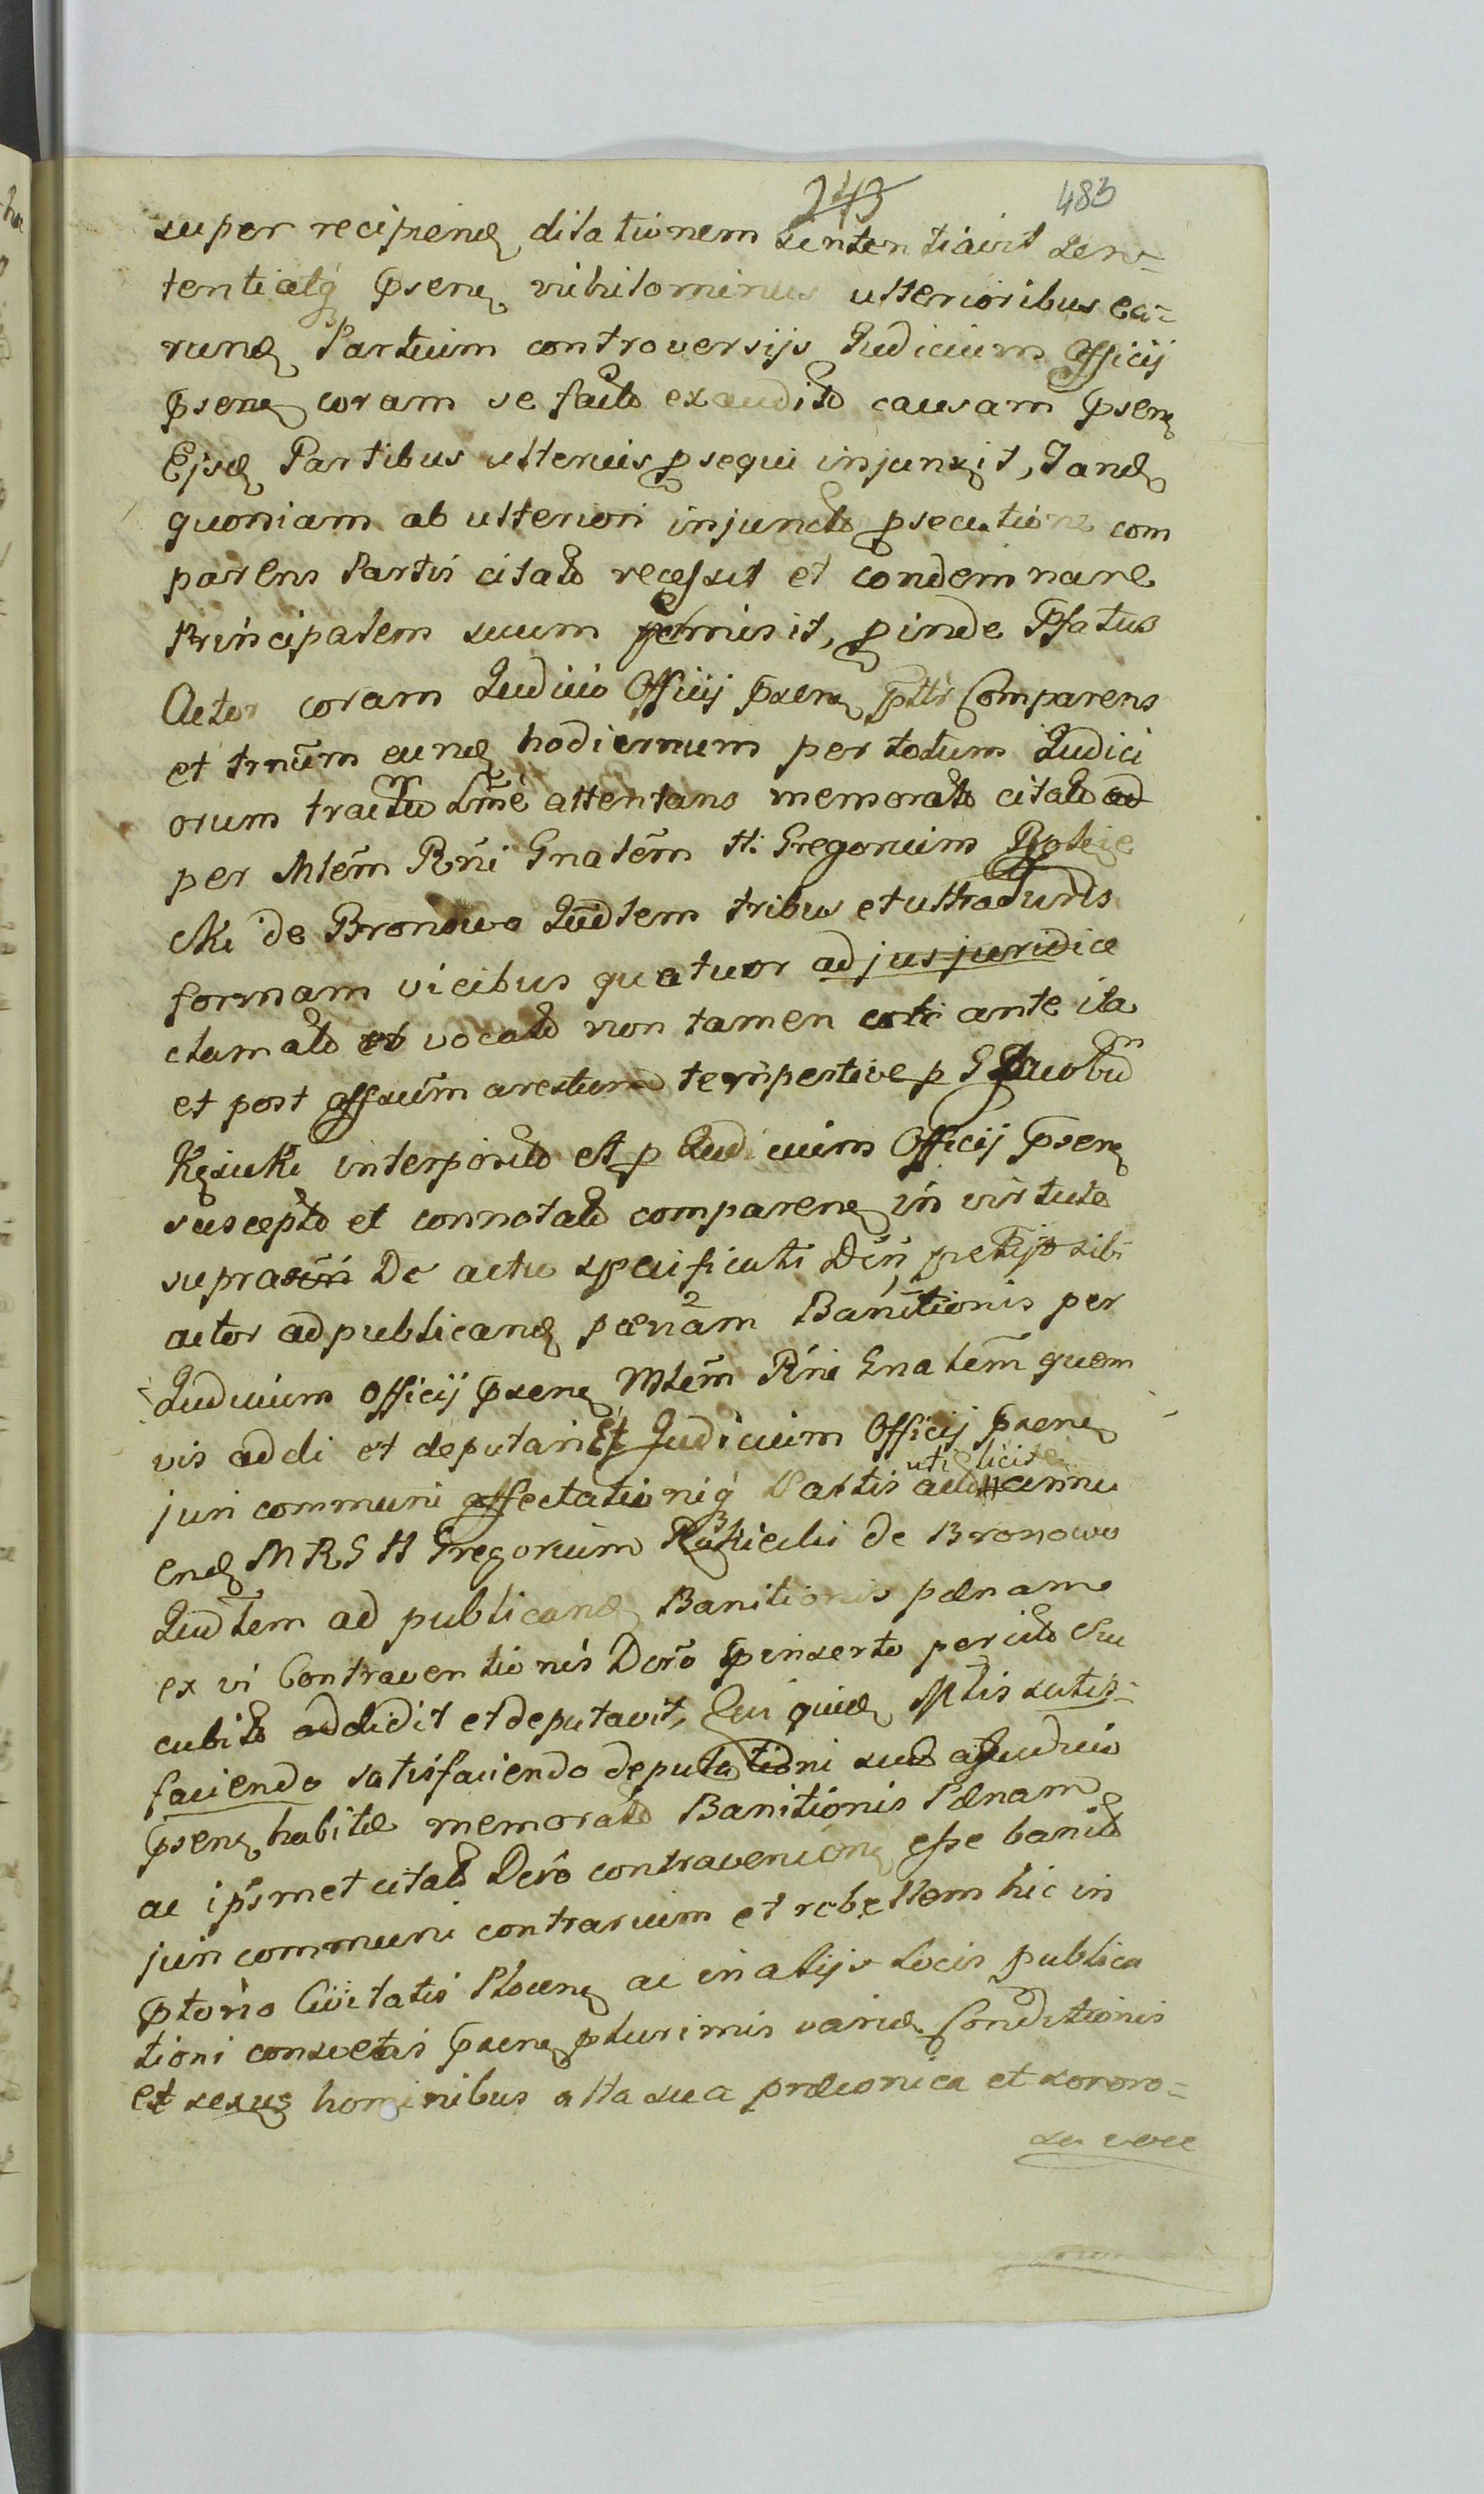 243 483
super recipiend dilationem sententiavit Sen-
tentiatq pseng nihilominus ulterioribus ea-
rund Partium controversijs Judicium Officij
pseng coram se facto exaudito causam pseng
Ejsd Partibus ulterius psequi injunxit, Tand
quoniam ab ulteriori injuncta psecutione com
parens Partis citatæ recessit et condemnare
Principalem suum permisit, pinde Pfatus
Actor coram Judicio Officij pseng pltr Comparens
et trnum eund hodiernum per totum Judici
orum tractum Lmē attentans memorato citato
per Mtēm Rñi Gnatēm H: Gregorium
cki de Bronowo Judtem tribus et ultra Juris
formam vicibus quatuor ad jus juridice
clamato et vocato non tamen ante ita
et post assum arestum tempestive p G Jacobū
interposito et p Judicium Officij pseng
suscepto et connotato compareng in virtute
De actu specificati Dñj petijt sibi
actor ad publicand pænam Banitionis per
Judicium Officij pseng Mtēm Rñi Gnatēm quem
vis addi et deputari Et Judicium Officij pseng
juri communi affectationiq Partis uti licite annu
end M R G H Gregorium de Bronowo
Judtem ad publicand Banitionis pænam
ex vi Contraventionis Decro pinserto per citato su
cubito addidit et deputavit, Qui quid Mtis satis-
faciendo satisfaciendo deputationi suæ a Judicio
pseng habitæ memorato Banitionis Pænam
ac ipsmet citato Decro contravenieng esse banito
juri communi contrarium et rebellem hic in
ptorio Civitatis Ploceng ac in alijs Locis publica
tioni consvetis pseng plurimis variæ Conditionis
et sexus hominibus alta sua præconica et sonoro-
sa voce